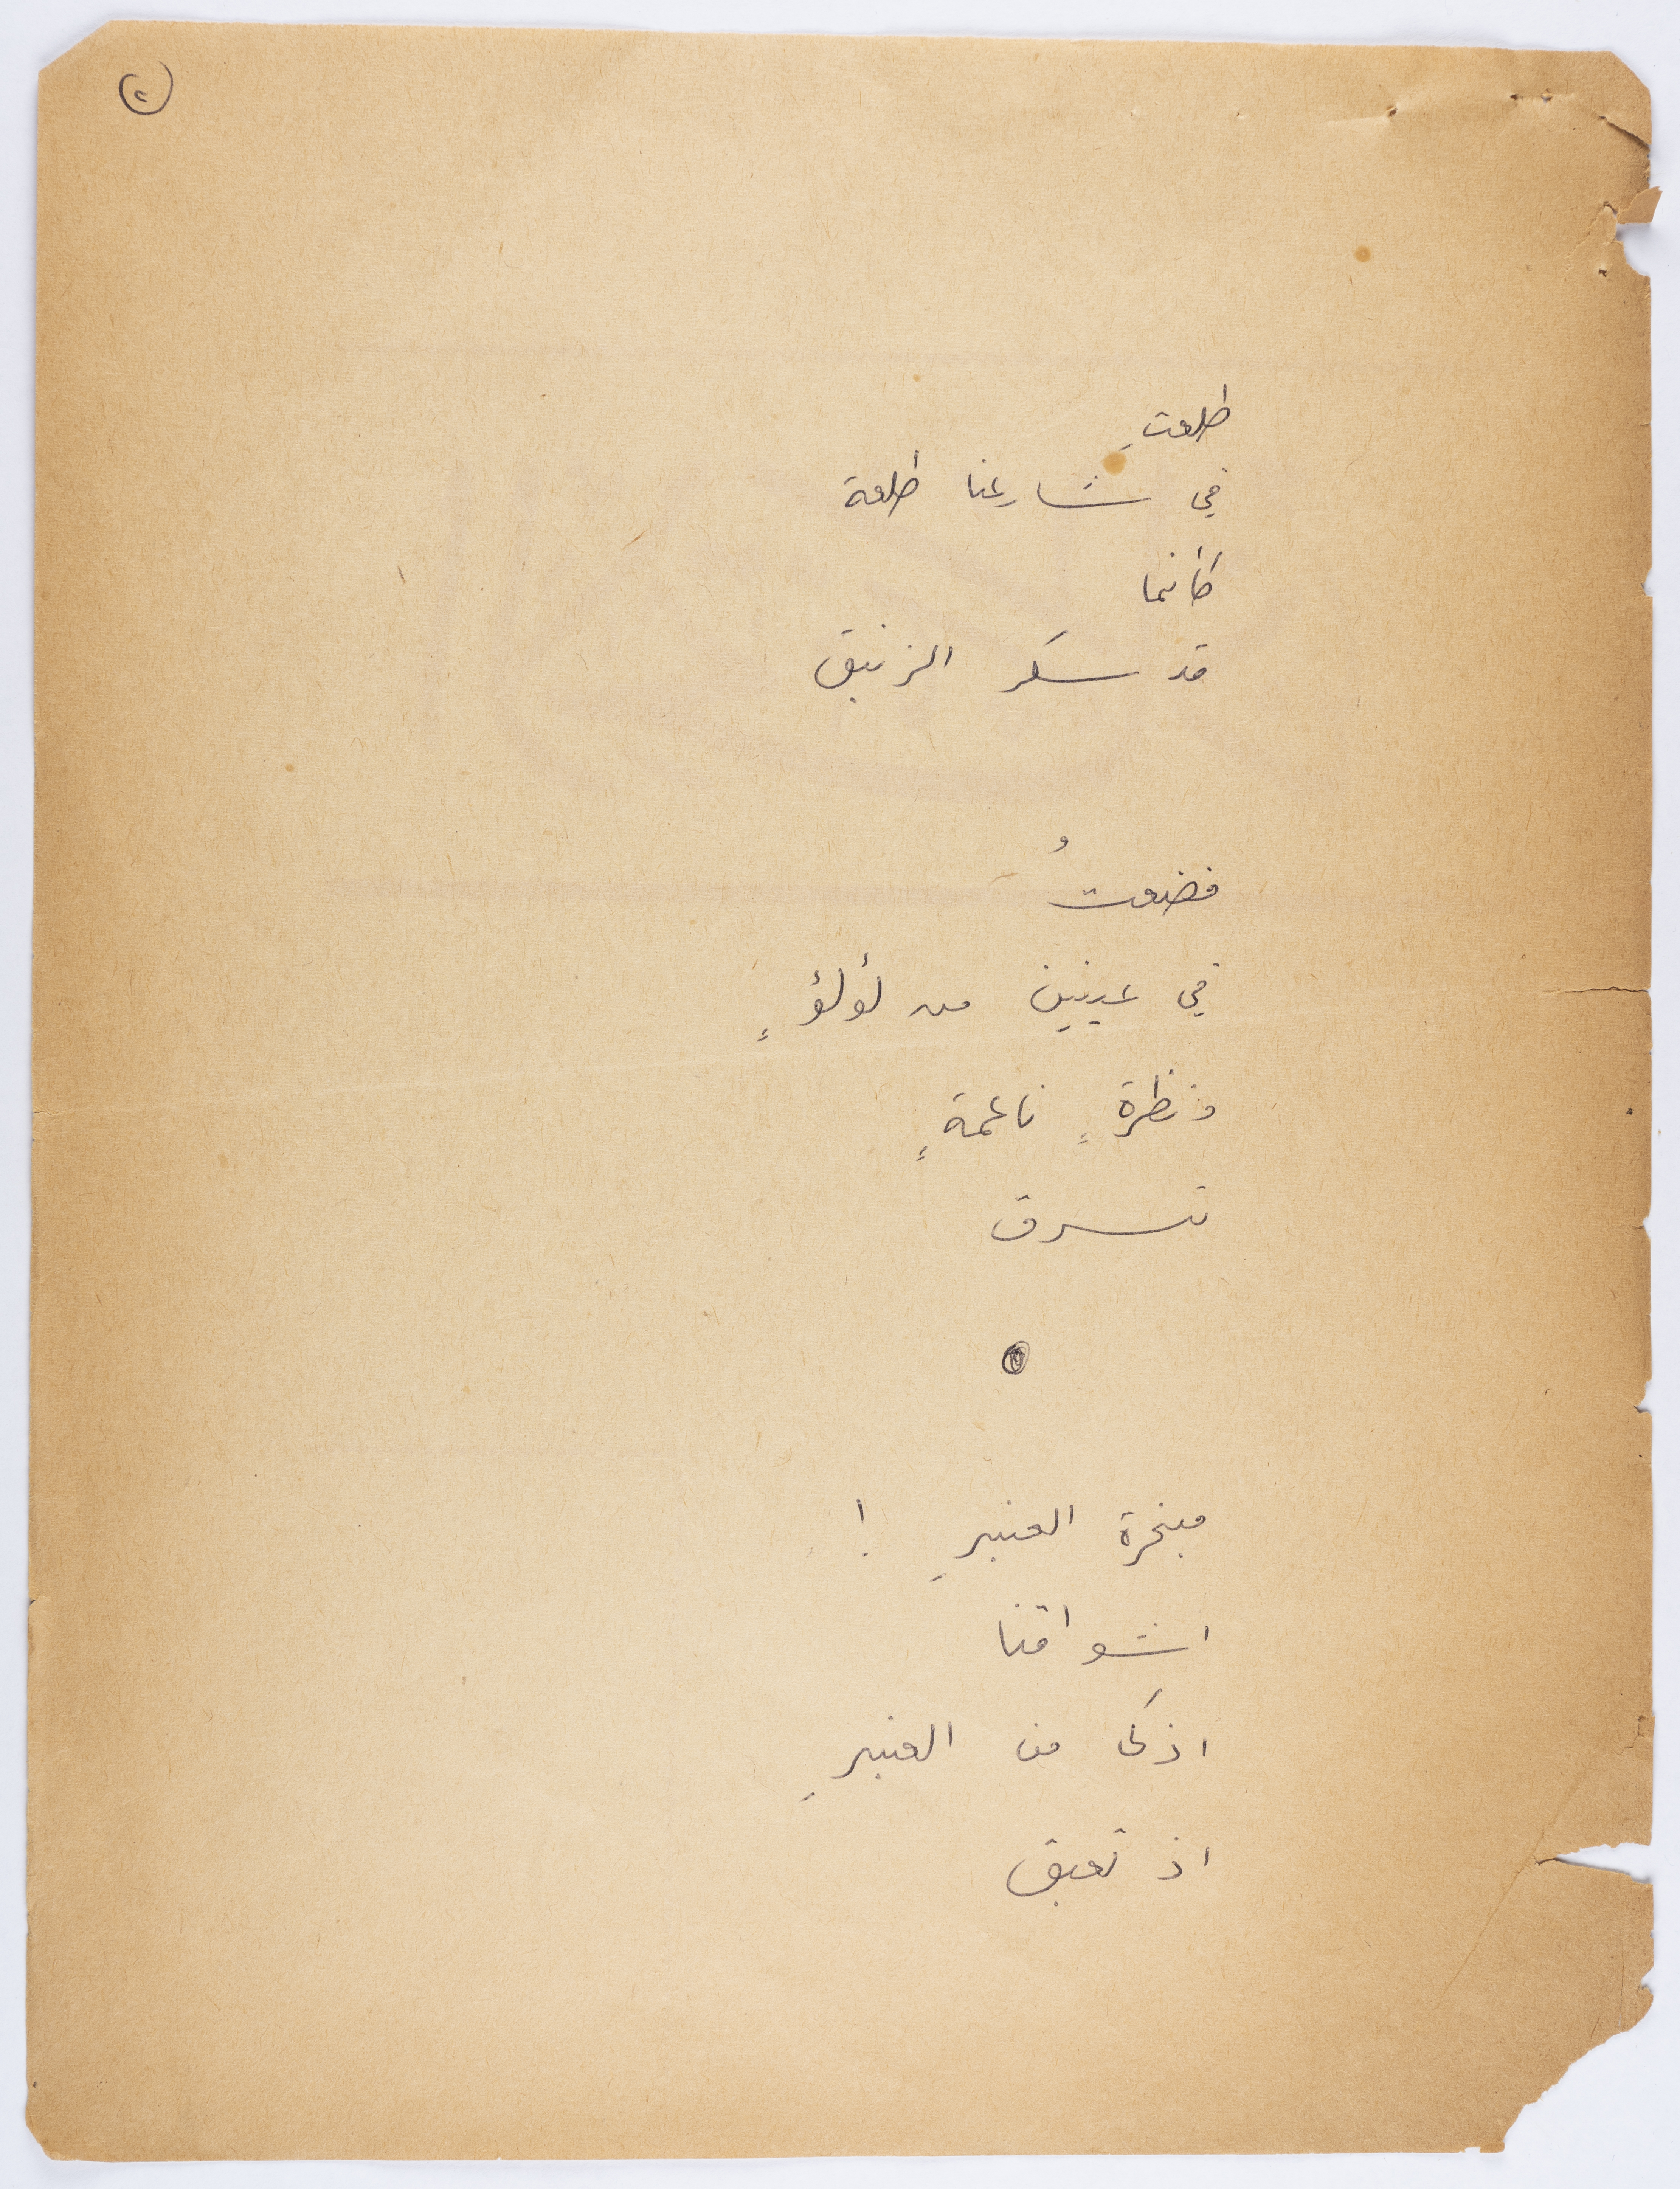 ٢
طلعتِ
في شارعنا طلعة
كأنما
قد سكر الزنبق
فضعتُ
في عينين من لؤلؤٍ
ونظرةٍ ناعمةٍ
تسرق
مبخرة العنبرِ !
اشواقنا
اذكى من العنبرِ
اذ تعبق